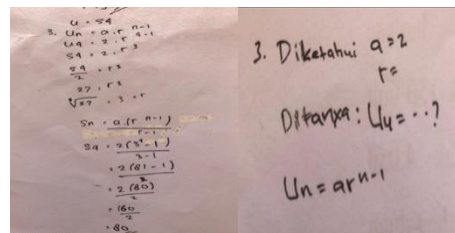 u = 54
3. Un = a.r n-1
U4 = 2.r 4-1
54 = 2.r3
54
2 = r3
27 = r3
∛27 = 3 = r
Sn = a.(r n-1)
r-1
S4 = 2(3⁴-1)
3-1
= 2(81-1)
2
= 2(80)
2
= 160
2
= 80
3. Diketahui a=2
r=
Ditanya: U4=...?
Un=ar n-1